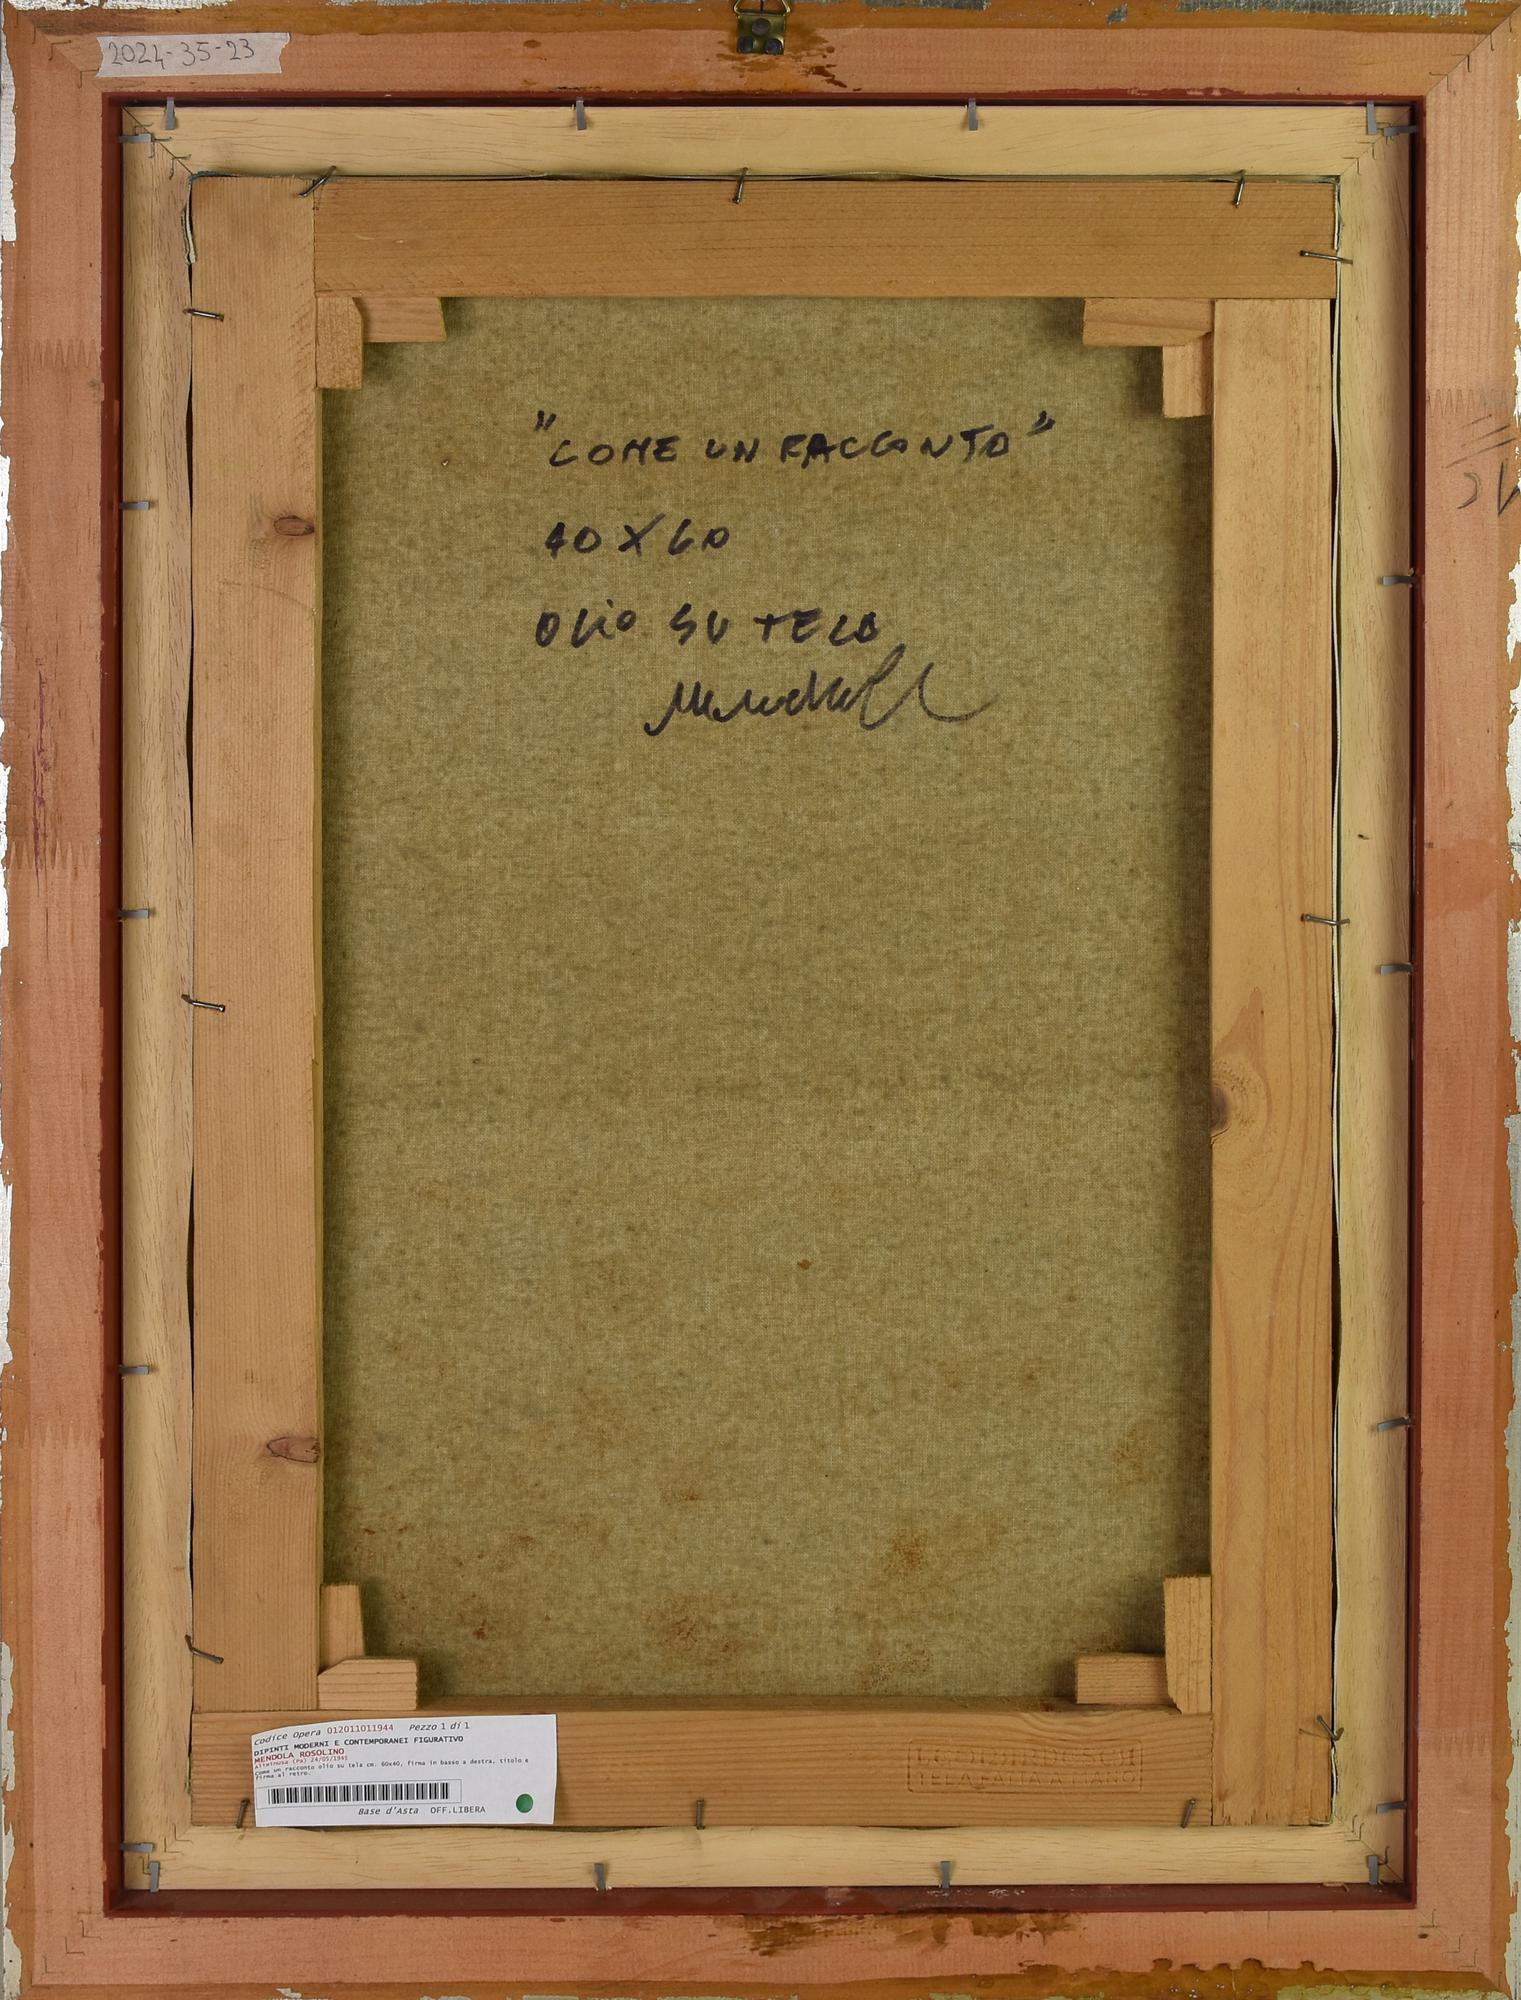 2024-35-23
"COME UN RACCONTO"
40X60
OLIO SU TELA
Codice Opera 012011011944 Pezzo 1 di 1
DIPINTI MODERNI E CONTEMPORANEI FIGURATIVO
MENDOLA ROSOLINO
Altavilla (Pa) 24/05/1945
Come un racconto olio su tela cm. 60x40, firma in basso a destra, titolo e
firma al retro.
Base d'Asta OFF.LIBERA
TELA FATTA A MANO